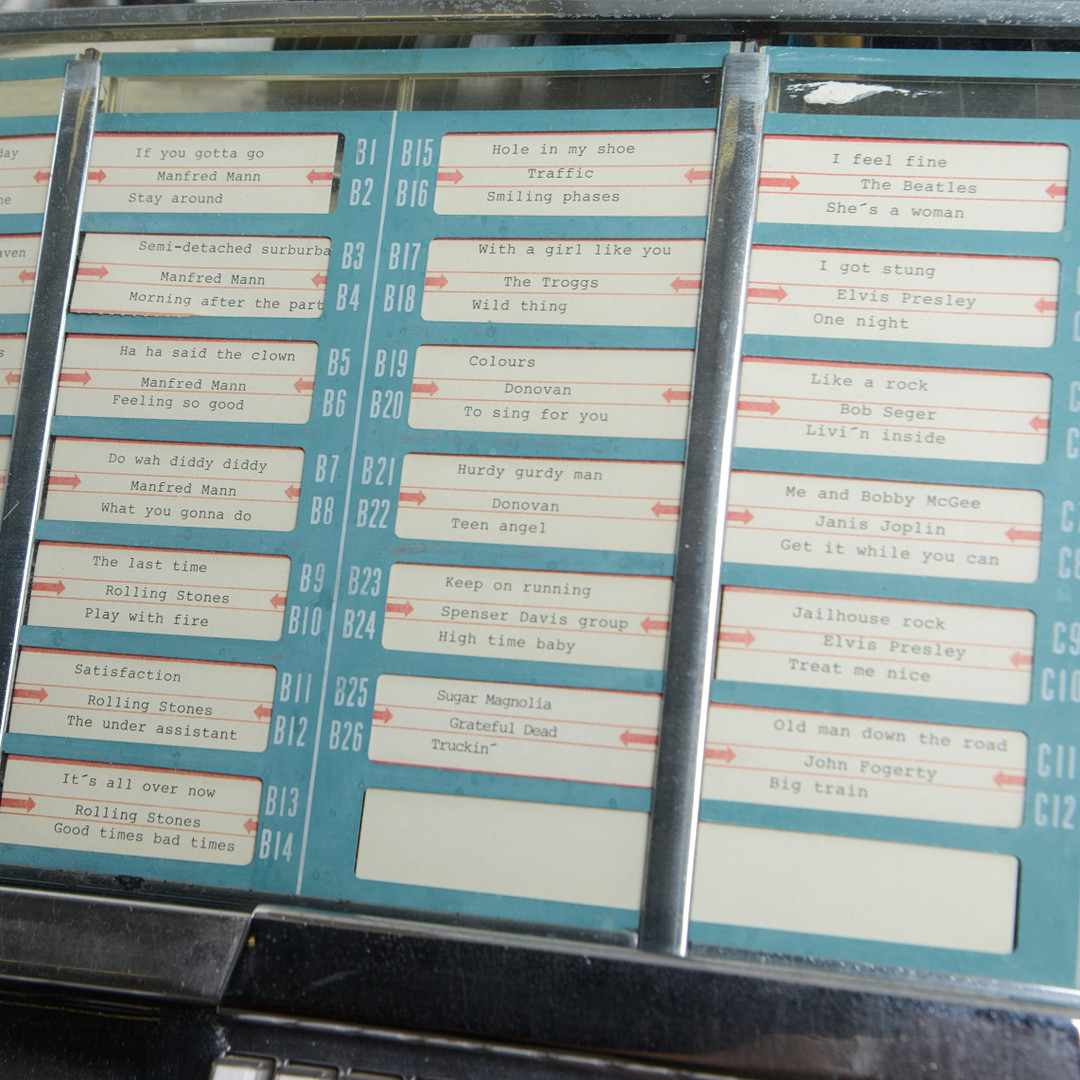 day
ne
aven
s
If you gotta go
Manfred Mann
Stay around
B1
B2
Semi-detached surburba
Manfred Mann
Morning after the part
B3
B4
Ha ha said the clown
Manfred Mann
Feeling so good
B5
B6
Do wah diddy diddy
Manfred Mann
What you gonna do
B7
B8
The last time
Rolling Stones
Play with fire
B9
B10
Satisfaction
Rolling Stones
The under assistant
B11
B12
It´s all over now
Rolling Stones
Good times bad times
B13
B14
B15
B16
Hole in my shoe
Traffic
Smiling phases
B17
B18
With a girl like you
The Troggs
Wild thing
B19
B20
Colours
Donovan
To sing for you
B21
B22
Hurdy gurdy man
Donovan
Teen angel
B23
B24
Keep on running
Spenser Davis group
High time baby
B25
B26
Sugar Magnolia
Grateful Dead
Truckin´
I feel fine
The Beatles
She´s a woman
I got stung
Elvis Presley
One night
Like a rock
Bob Seger
Livi´n inside
Me and Bobby McGee
Janis Joplin
Get it while you can
Jailhouse rock
Elvis Presley
Treat me nice
C9
C10
Old man down the road
John Fogerty
Big train
C11
C12